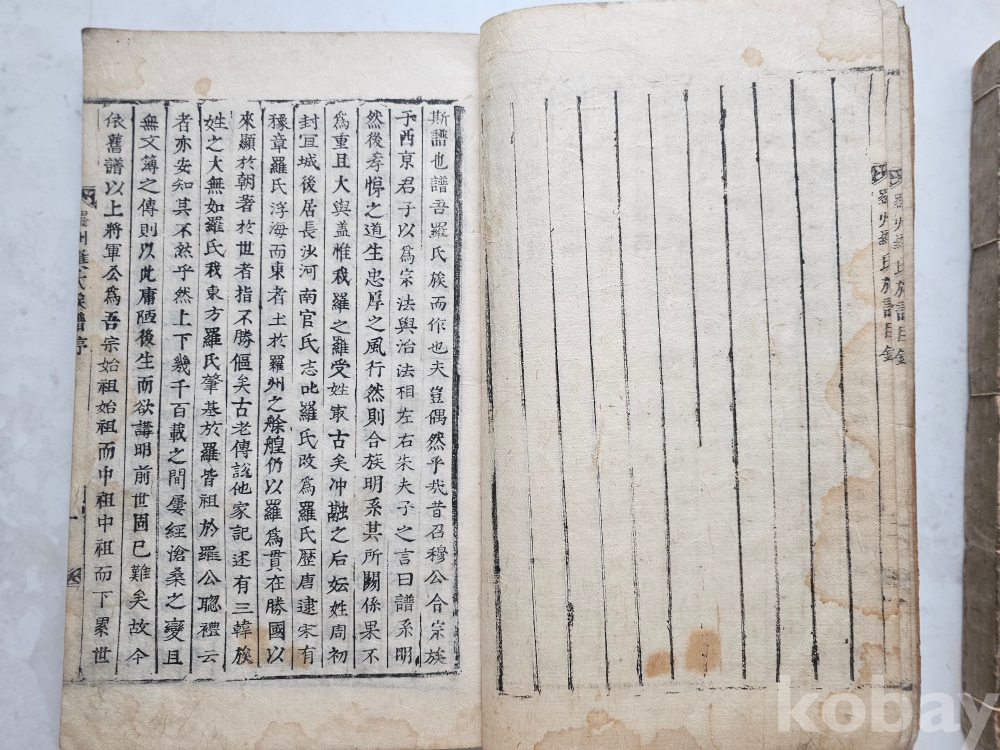 羅州羅氏族譜目錄
羅州羅氏族譜目錄
斯譜也譜吾羅氏族而作也夫豈偶然乎哉昔召穆公合宗族
于西京君子以爲宗法與治法相左右朱夫子之言曰譜系明
然後孝悌之道生忠厚之風行然則合族明系其所關係果不
爲重且大與盖惟我羅之羅受姓冣古矣冲融之后妘姓周初
封冝城後居長沙河南官氏志叱羅氏改爲羅氏歷唐逮宋有
豫章羅氏浮海而東者土於羅州之艅艎仍以羅爲貫在勝國以
來顯於朝著於世者指不勝傴矣古老傳說他家記述有三韓族
姓之大無如羅氏我東方羅氏肇基於羅皆祖於羅公聦禮云
者亦安知其不然乎然上下幾千百載之間屢經滄桑之變且
無文簿之傳則以此庸陋後生而欲講明前世固已難矣故今
依舊譜以上將軍公爲吾宗始祖始祖而中祖中祖而下累世
羅州羅氏族譜序
一
kobay